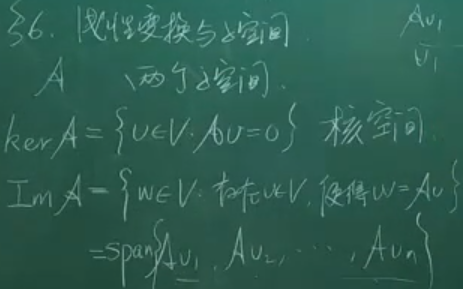 §6. 线性变换与子空间.
Av₁
v₁
A 两个子空间.
ker A = {v∈V. Av=0} 核空间.
Im A = {w∈V. 存在v∈V, 使得w=Av}
=span{Av₁, Av₂, ..., Avₙ}